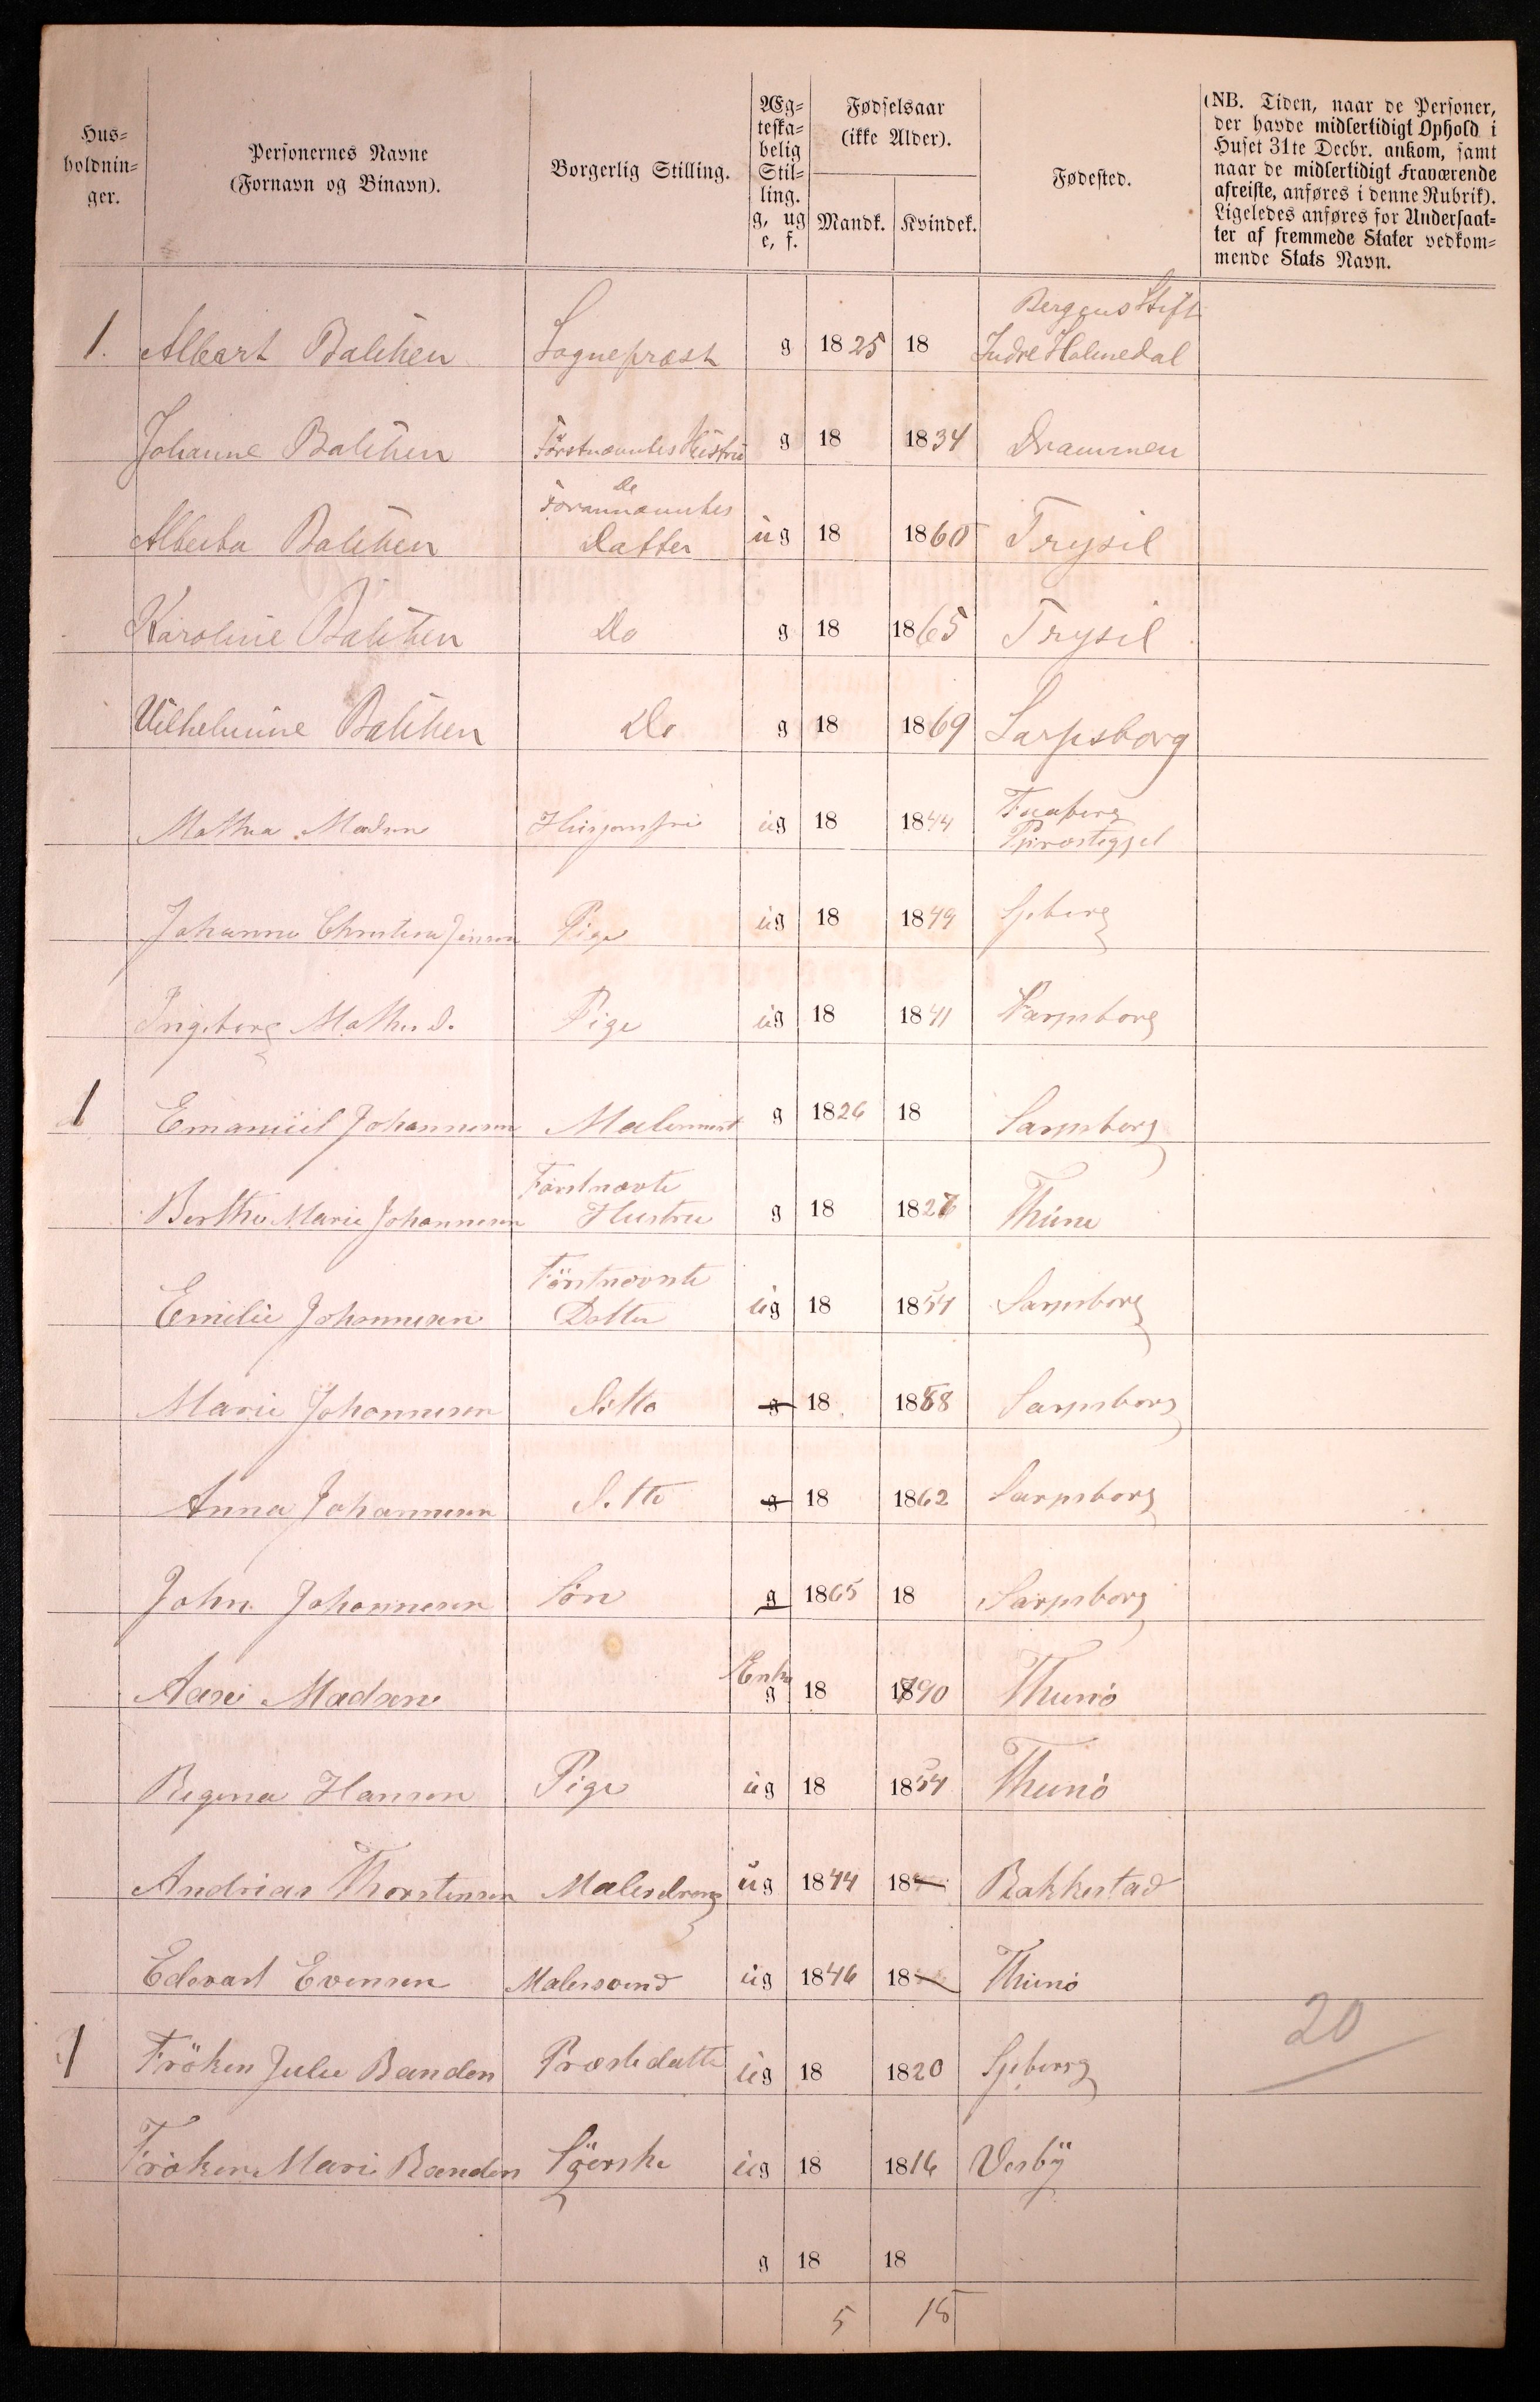 Hus-
holdnin-
ger.
Personernes Navne
(Fornavn og Binavn).
Borgerlig Stilling.
Æg-
teska-
belig
Stil-
ling.
g, ug
e, f.
Fødselsaar
(ikke Alder).
Mandk. Kvindek.
Fødested.
(NB. Tiden, naar de Personer,
der havde midlertidigt Ophold i
Huset 31te Decbr. ankom, samt
naar de midlertidigt fraværende
afreiste, anføres i denne Rubrik).
Ligeledes anføres for Undersaat-
ter af fremmede Stater vedkom-
mende Stats Navn.
Bergens Stift
1. Albert Balchen Sognepræst g 1825 18 Indre Holmedal
Johanne Balchen Førstnævntes Hustru g 18 1834 Drammen
De
Forannævntes
Alberta Balchen Datter ug 18 1860 Trysil
Karoline Balchen Do g 18 1865 Trysil
Vilhelmine Balchen Do g 18 1869 Sarpsborg
Mathea Madsen Huusjomfru ug 18 1844 Faaberg
Præstegjel
Johanne Christina Jensen Pige ug 18 1849 Spberg
Ingeborg Mathis D. Pige ug 18 1841 Sarpsborg
1 Emanuel Johannesen Malermest g 1826 18 Sarpsborg
Førstnævte
Berthe Marie Johannesen Hustru g 18 1827 Thune
Förstnævnte
Emilie Johannesen Datter ug 18 1854 Sarpsborg
Marie Johannesen Ditto g 18 1858 Sarpsborg
Anna Johannesen Ditto g 18 1862 Sarpsborg
John Johannesen Søn g 1865 18 Sarpsborg
Enke
Aase Madsen g 18 1790 Thunö
Regina Hansen Pige ug 18 1854 Thunö
Andrias Thorstensen Malerdreng ug 1844 18 Rakkestad
Edvart Evensen Malersvend ug 1846 18 Thunö
20
1 Fröken Julie Banden Præstedatte ug 18 1820 Spberg
Fröken Marie Banden Syerske ug 18 1816 Vesby
g 18 18
5 15